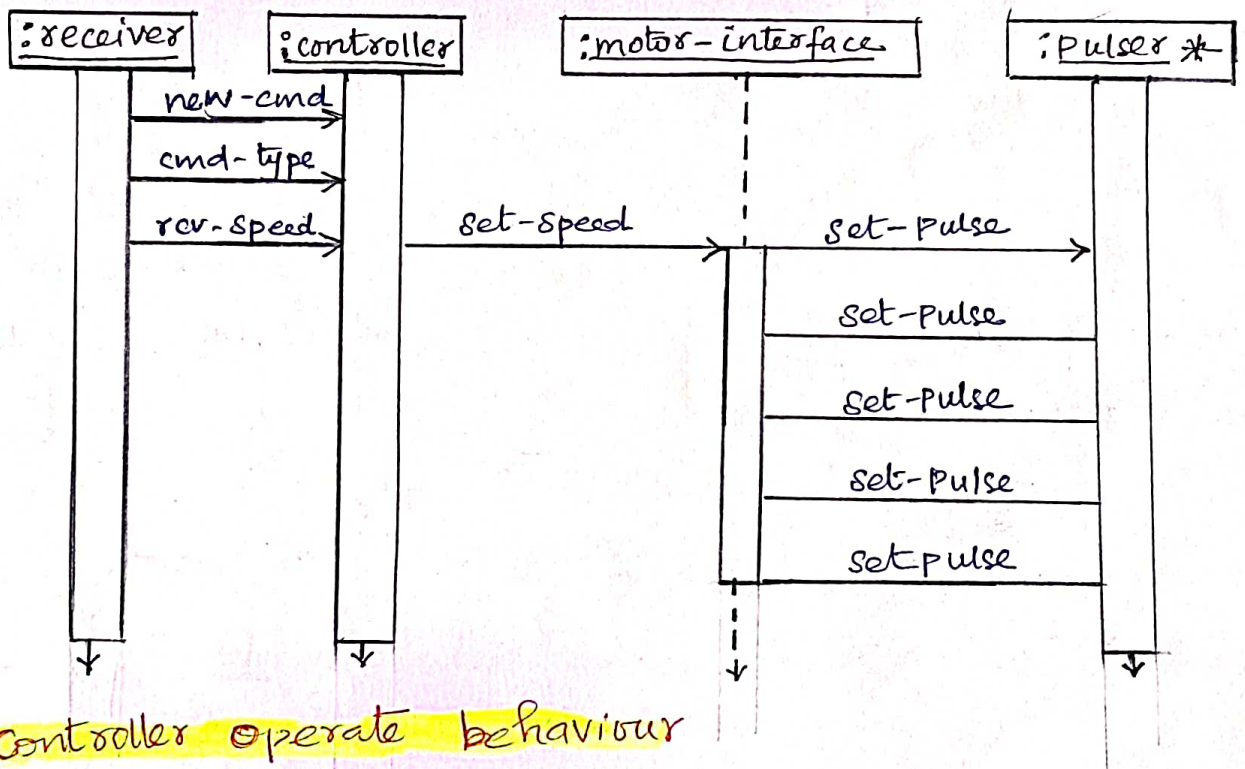 :receiver :controller :motor-interface :pulser *
new-cmd
cmd-type
rcv-speed set-speed set-pulse
set-pulse
set-pulse
set-pulse
setpulse
controller operate behaviour